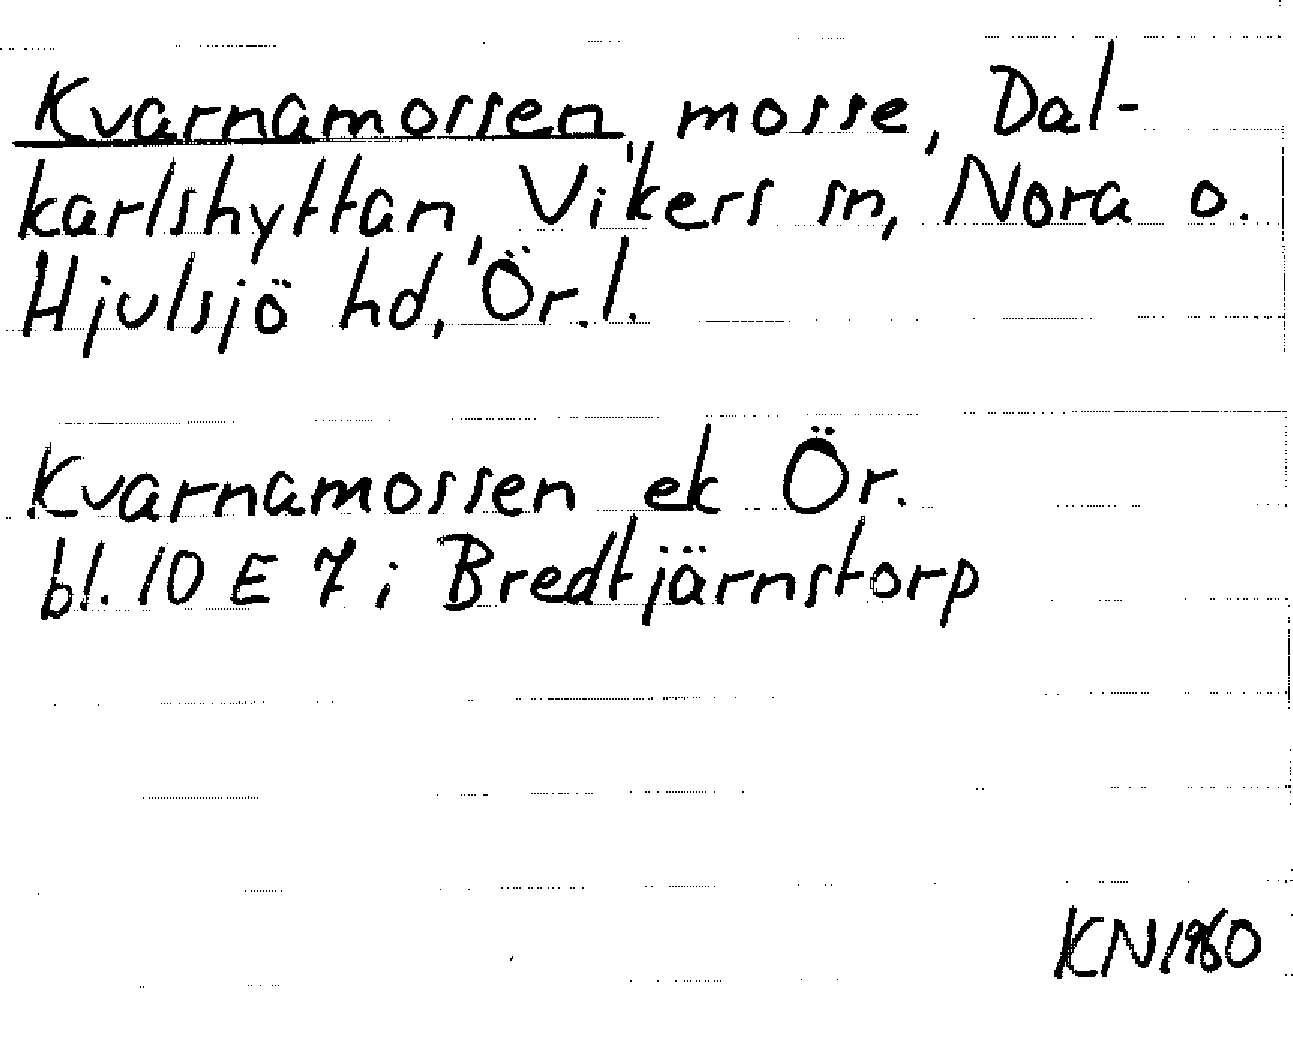 Kvarnamossen, mosse, Dal-
karlshyttan, Vikers sn, Nora o.
Hjulsjö hd, Ör. l.
Kvarnamossen ek Ör.
bl. 10 E 7 i Bredtjärnstorp
KN 1960